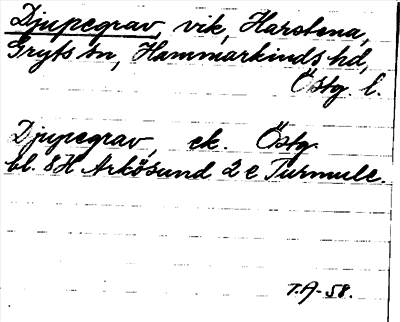 Djupegrav, vik, Harstena,
Gryts sn, Hammarkinds hd,
Östg. l.
Djupegrav, ek. Östg.
bl. 8H Arkösund 2 e Turmulc.
T.A-58.